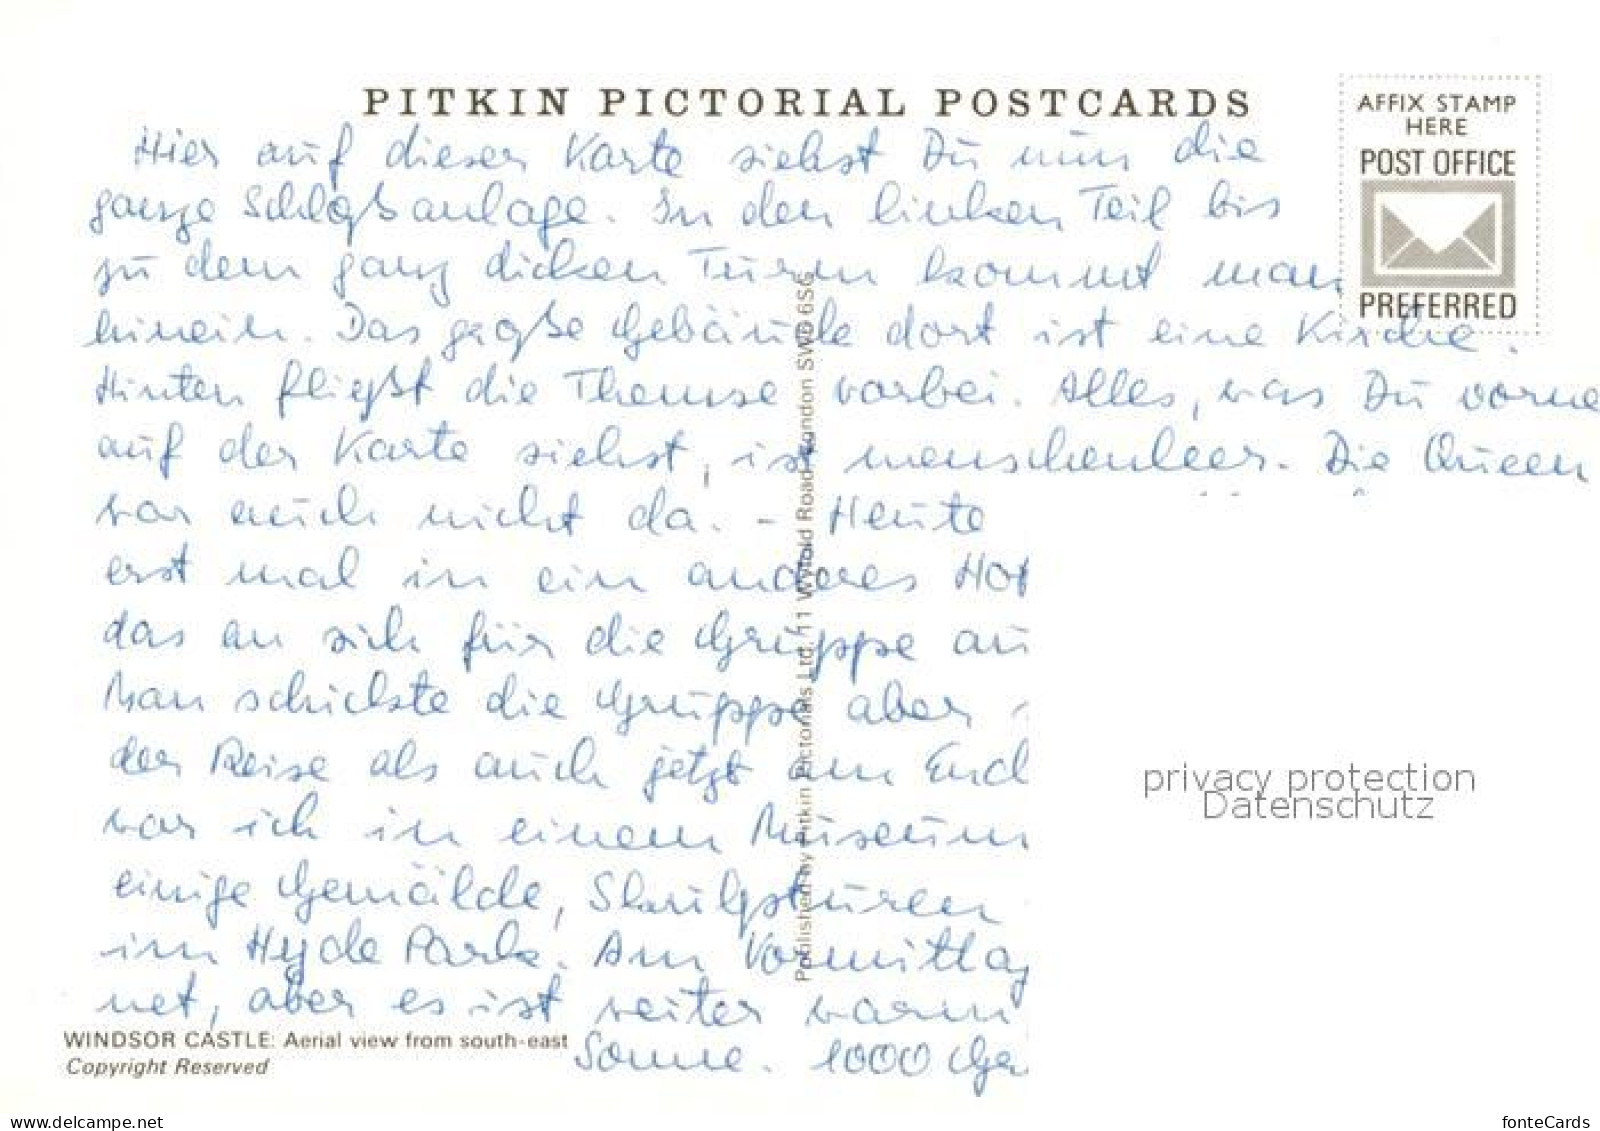 PITKIN PICTORIAL POSTCARDS
AFFIX STAMP
HERE
POST OFFICE
PREFERRED
Hier auf dieser Karte siehst Du nun die
ganze Schloßanlage. In den linken Teil bis
zu dem ganz dicken Turm kommt man
hinein. Das große Gebäude dort ist eine Kirche.
Hinten fließt die Themse vorbei. Alles, was Du vorne
auf der Karte siehst, ist menschenleer. Die Queen
war auch nicht da. - Heute
erst mal in ein anderes Hot
das an sich für die Gruppe au
Man schickte die Gruppe aber
der Reise als auch jetzt am End
war ich in einem Museum
einige Gemälde, Skulpturen
im Hyde Park. Am Vormittag
net, aber es ist weiter warm
Sonne. 1000 Ge
Published by Pitkin Pictorials Ltd. 11 Wyfold Road London SW6 6SG
WINDSOR CASTLE: Aerial view from south-east
Copyright Reserved
privacy protection
Datenschutz
www.delcampe.net
fonteCards